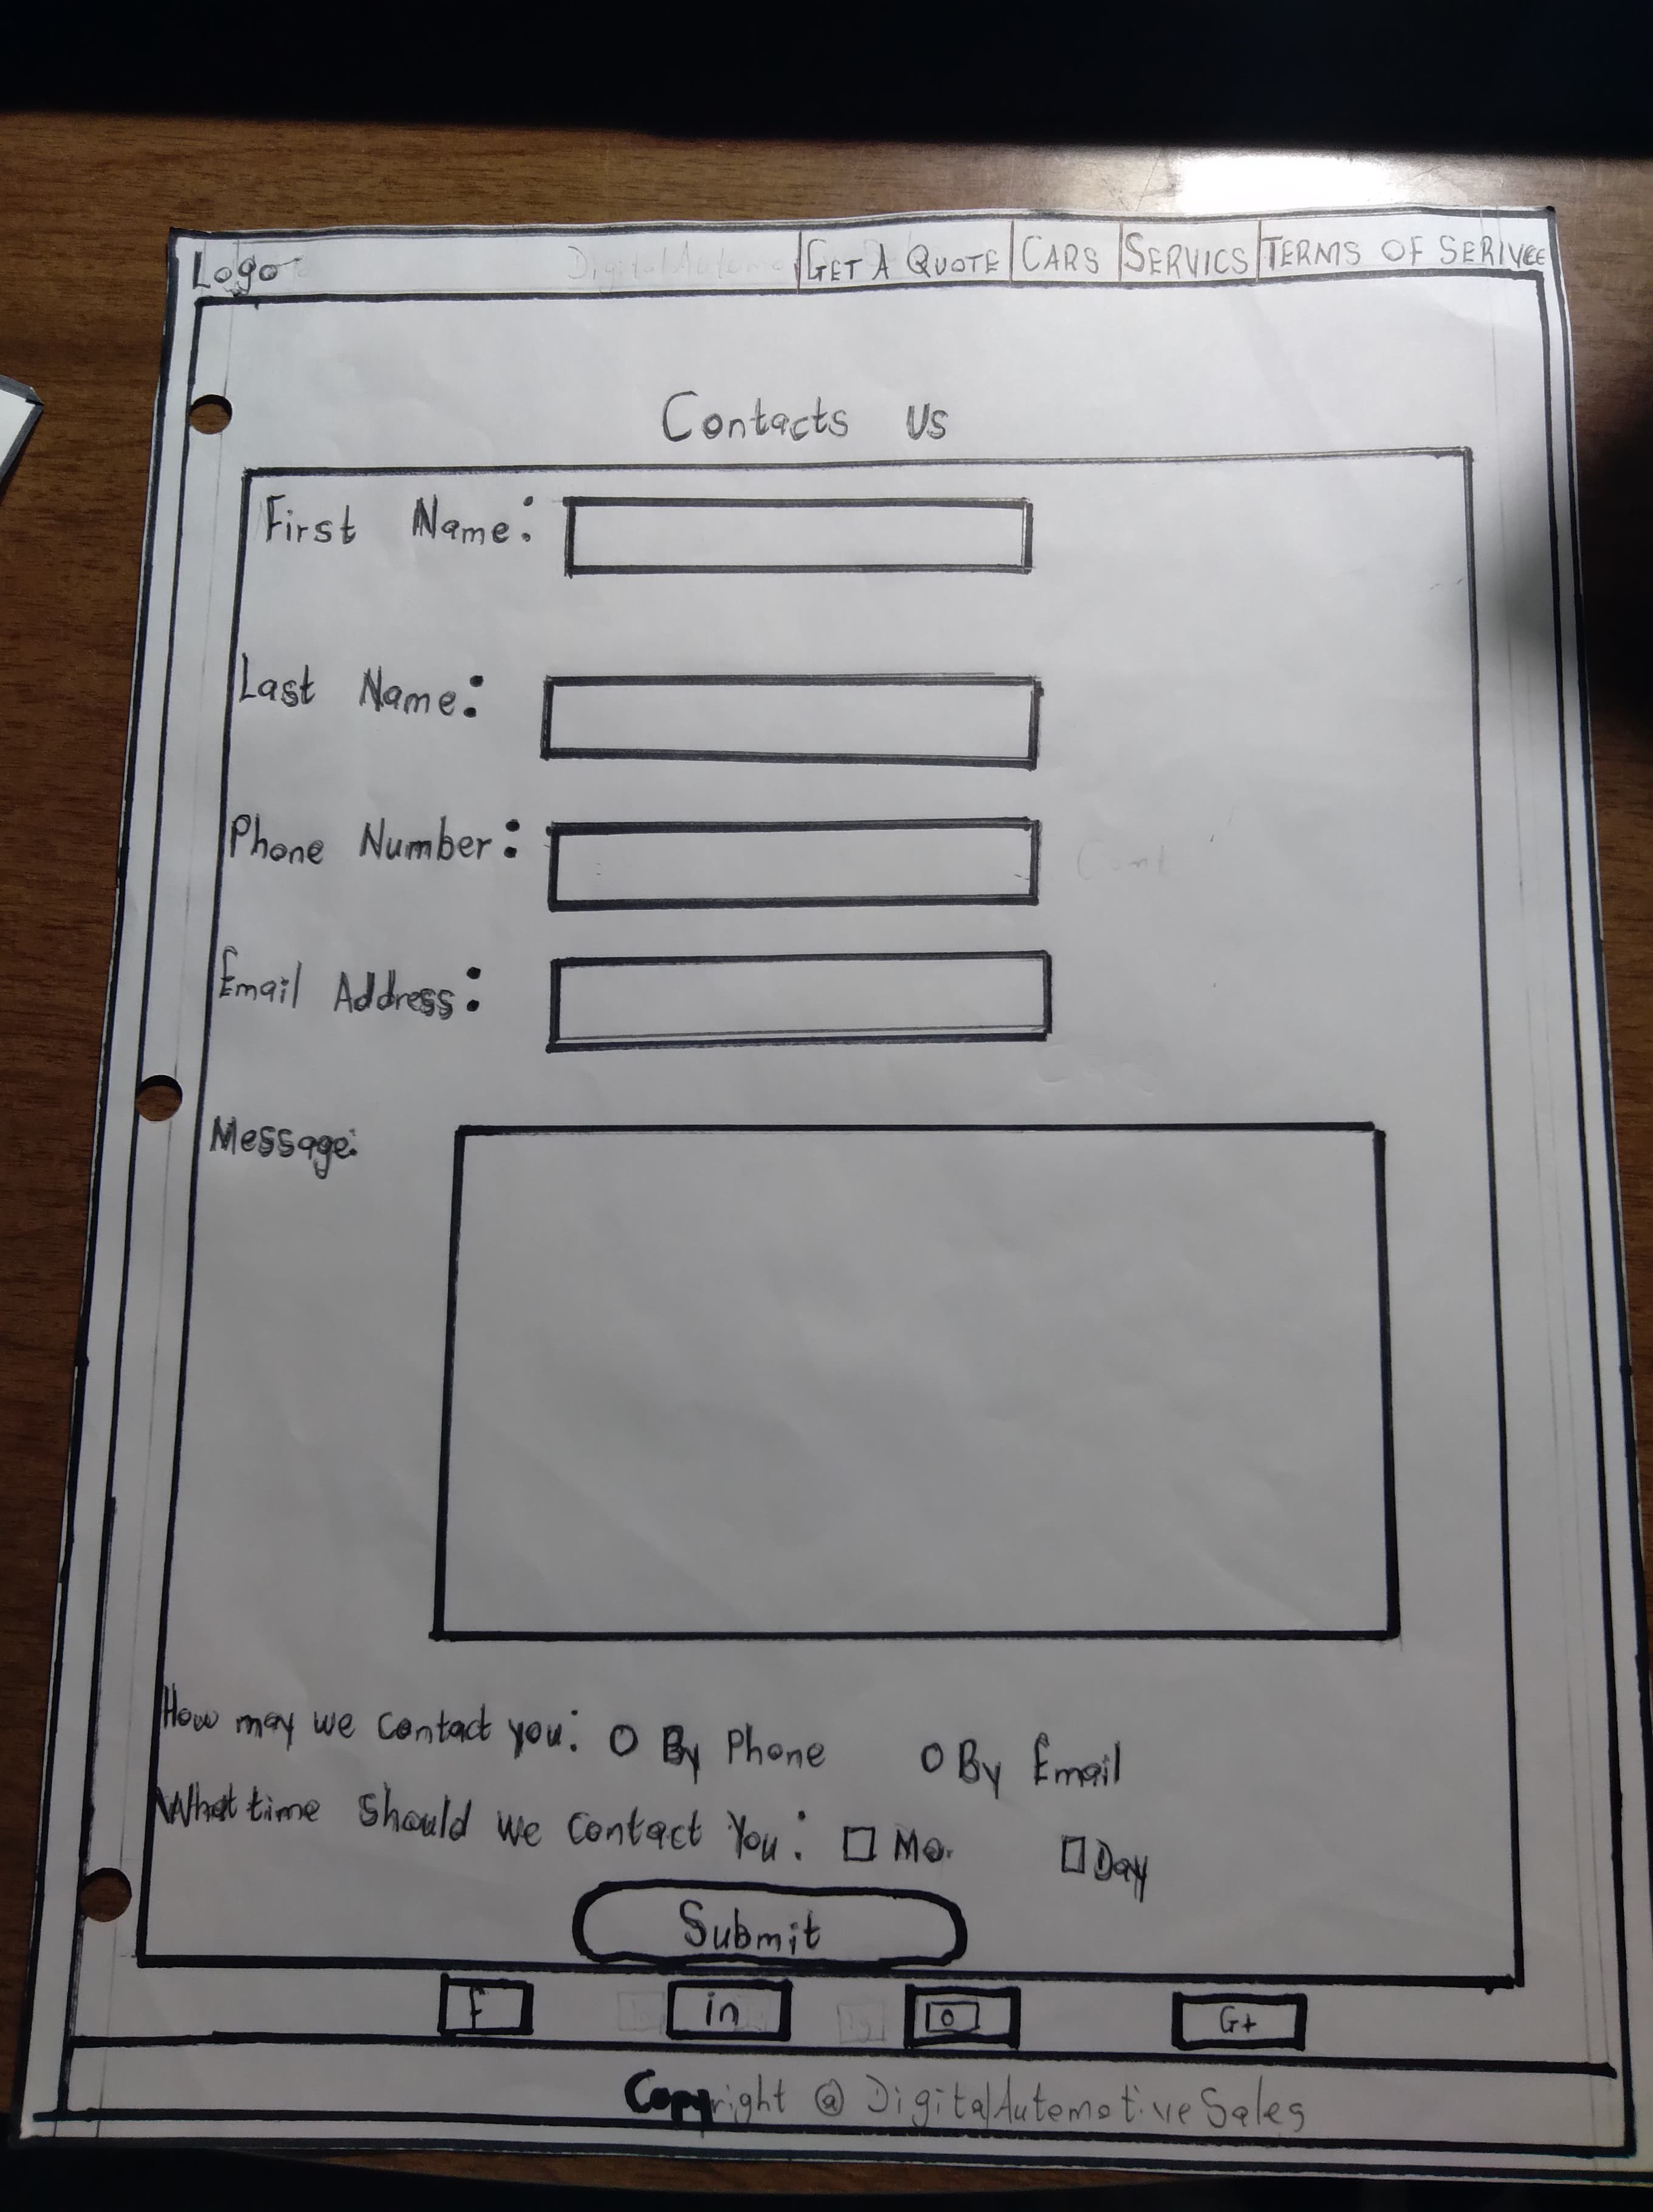 Logo GET A QUOTE CARS SERVICS TERMS OF SERIVEE
Contacts Us
First Name:
Last Name:
Phone Number:
Email Address:
Message:
How may we contact you: By Phone By Email
What time should we contact You: Mo. Day
Submit
f in G+
Copyright @ DigitalAutomotiveSales